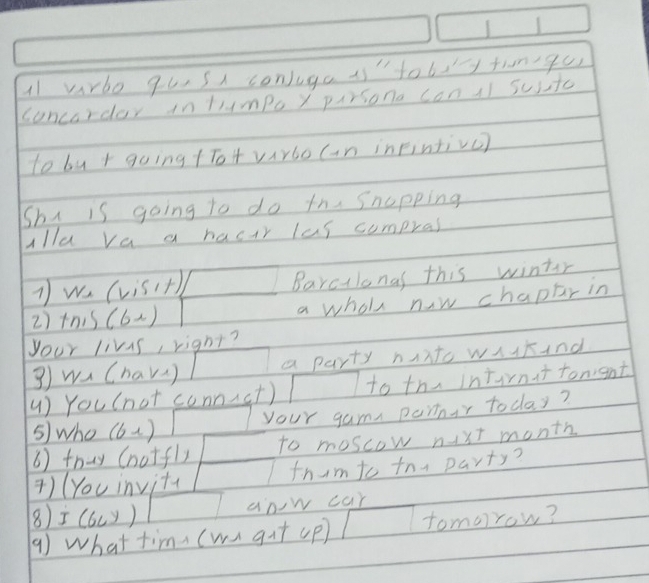 El verbo que se conjuga es "to be" y tiene que
concordar en tiempo y persona con el sujeto
to be + going + To + verbo (en infintivo)
She is going to do the shopping
ella va a hacer las compras
1) We (visit) Barcelona, this winter
2) this (be) a whole new chapter in
your lives, right?
3) We (have) a party nexto weekend
4) You (not connect) to the internet tonight
5) Who (be) your game partner today?
6) they (not fly to moscow next month
7) (You invite them to the party?
8) I (buy) a new car
9) What time (we get up) tomorrow?